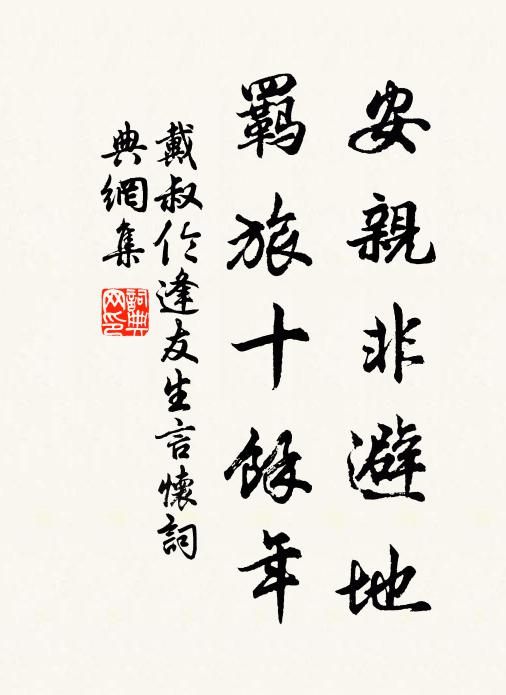 安親非避地
羈旅十餘年
戴叔伦逢友生言懷詞
典網集
詞典
网印